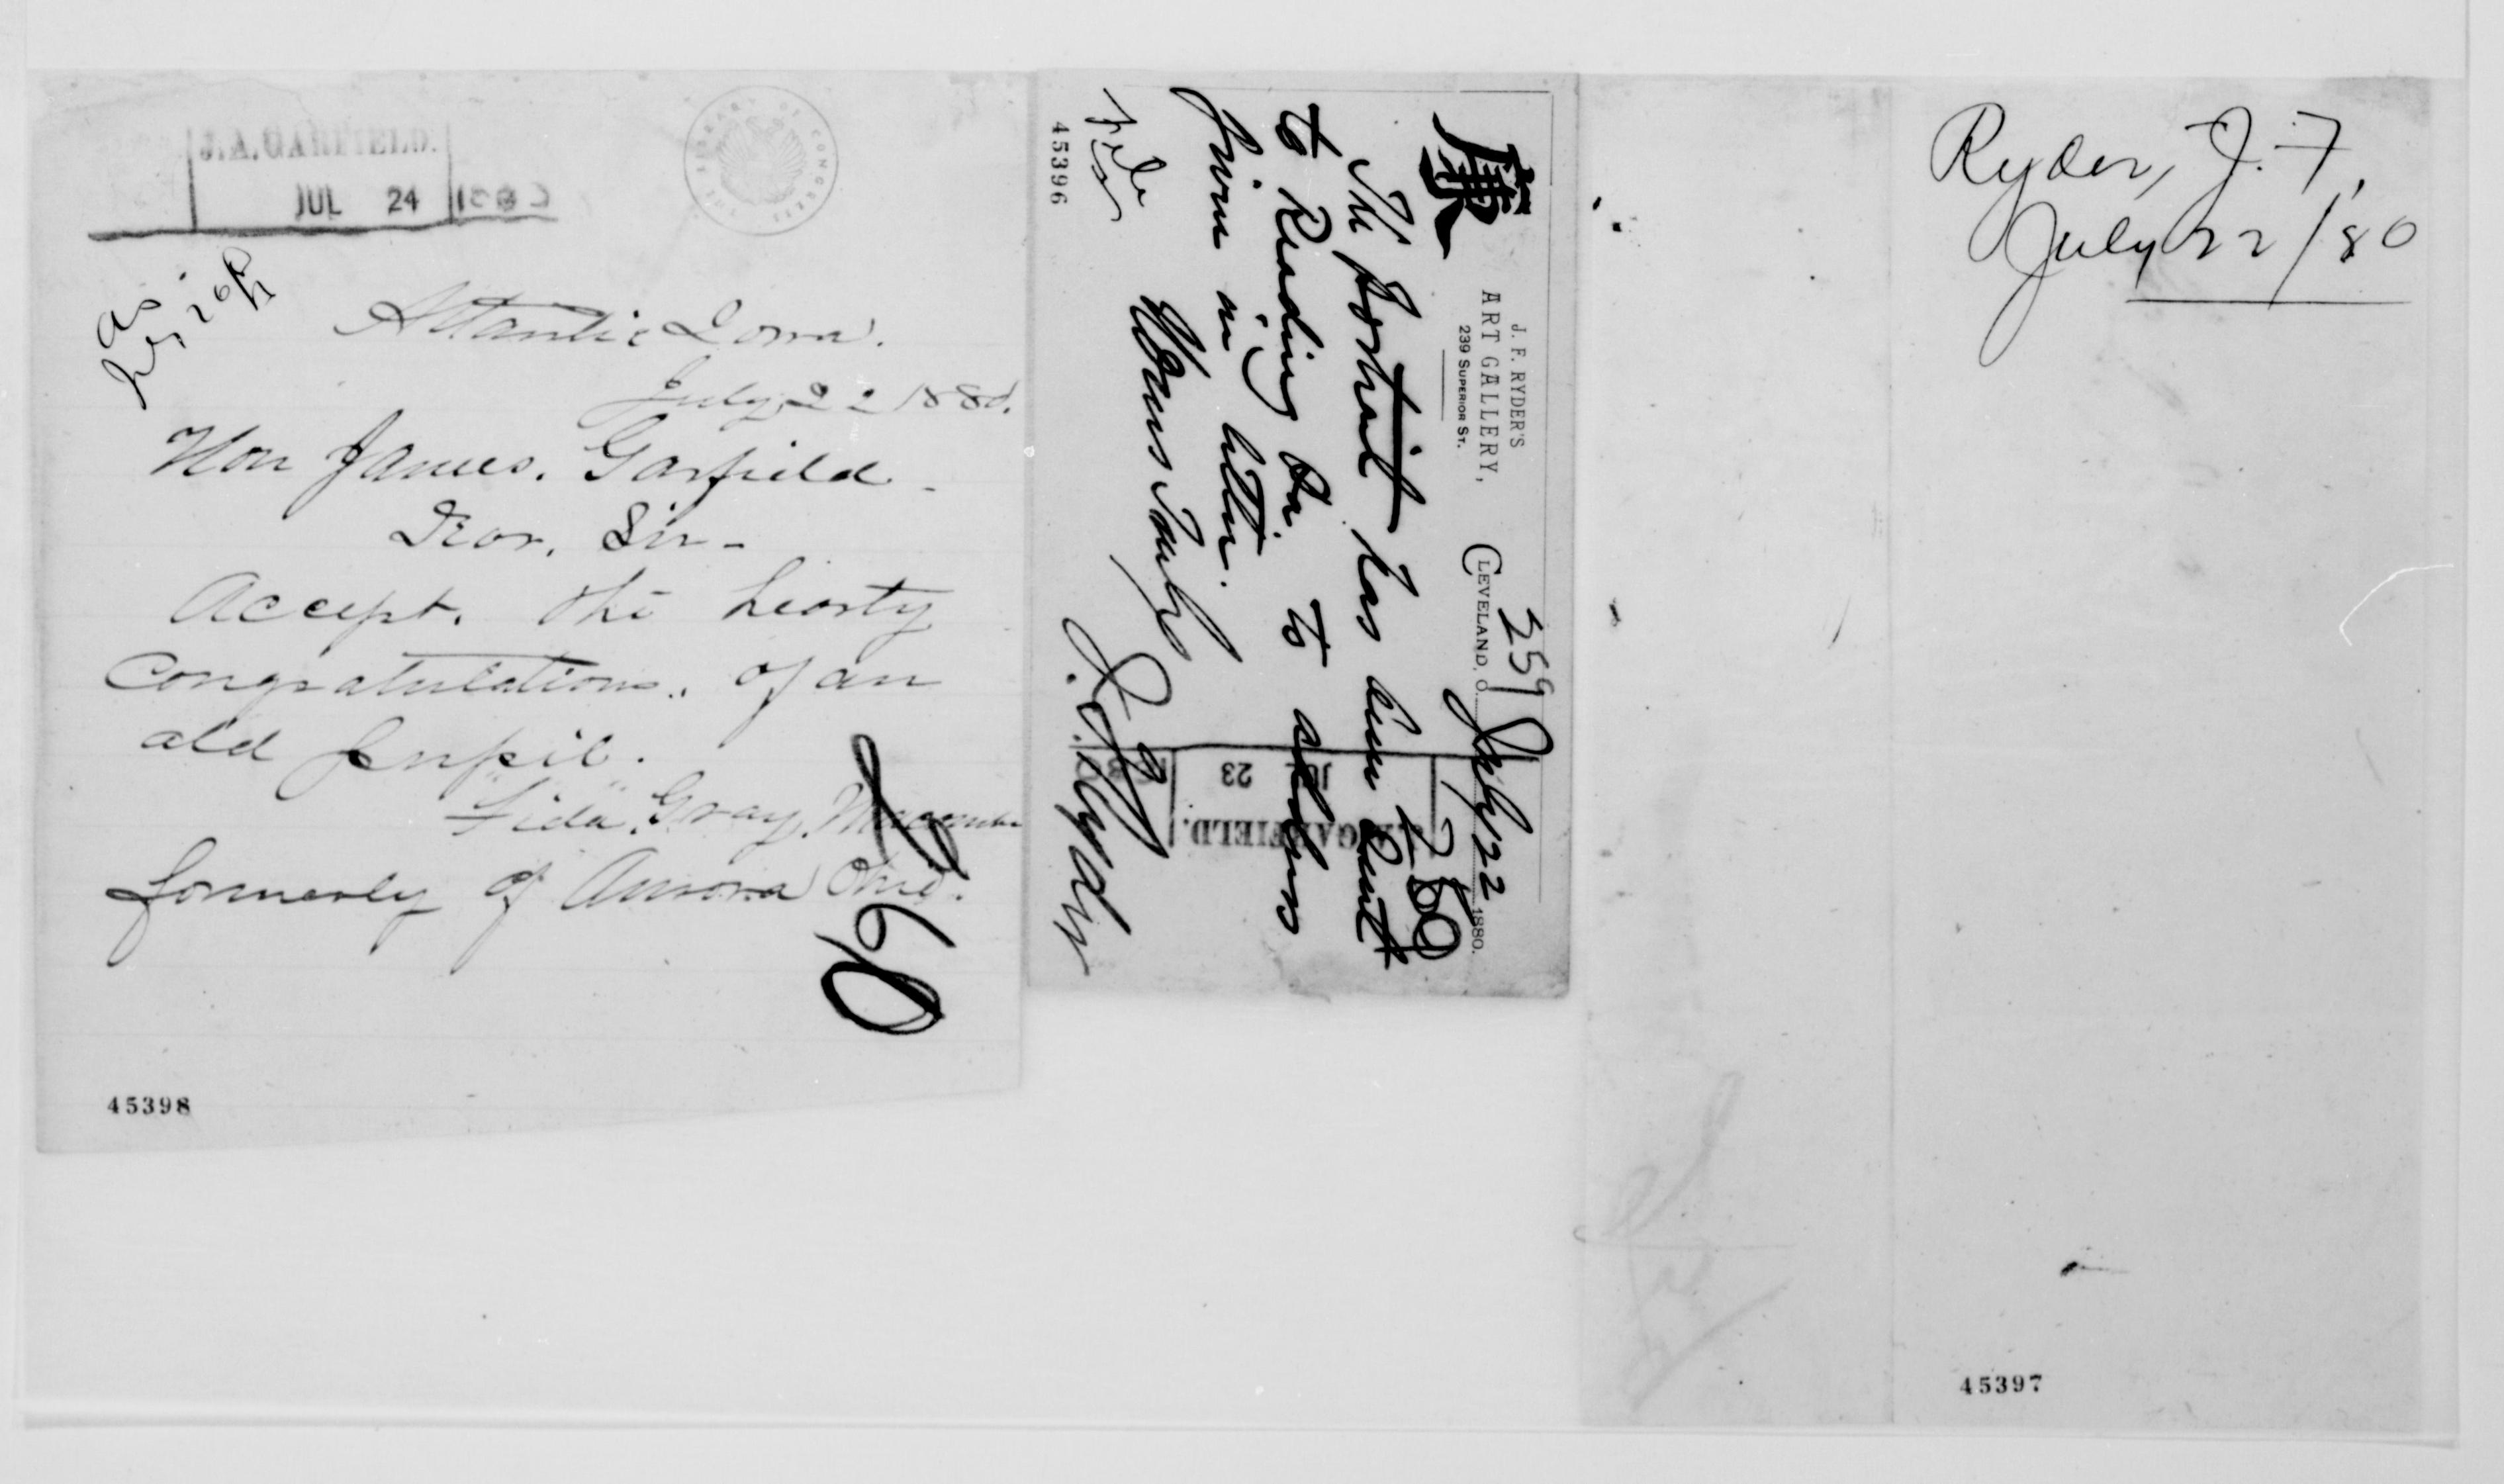 J.A. GARFIELD.
JUL 24 1880
THE LIBRARY OF CONGRESS
Atlantic Iowa.
July 22 1880.
Hon James. Garfield.
Dear. Sir-
Accept. the hearty
Congratulations. of an
old pupil.
"Fida". Gray. Macomber
formerly of Aurora Ohio.
260
45398
J. F. RYDER'S
ART GALLERY,
239 SUPERIOR ST.
259
CLEVELAND, O. July 22 1880.
The portrait has been sent
to Reading Pa. to address
given in letter.
Yours Truly
J. F. Ryder
J.A. GARFIELD.
JUL 23 1880
45396
Ryder, J. F,
July 22/80
45397